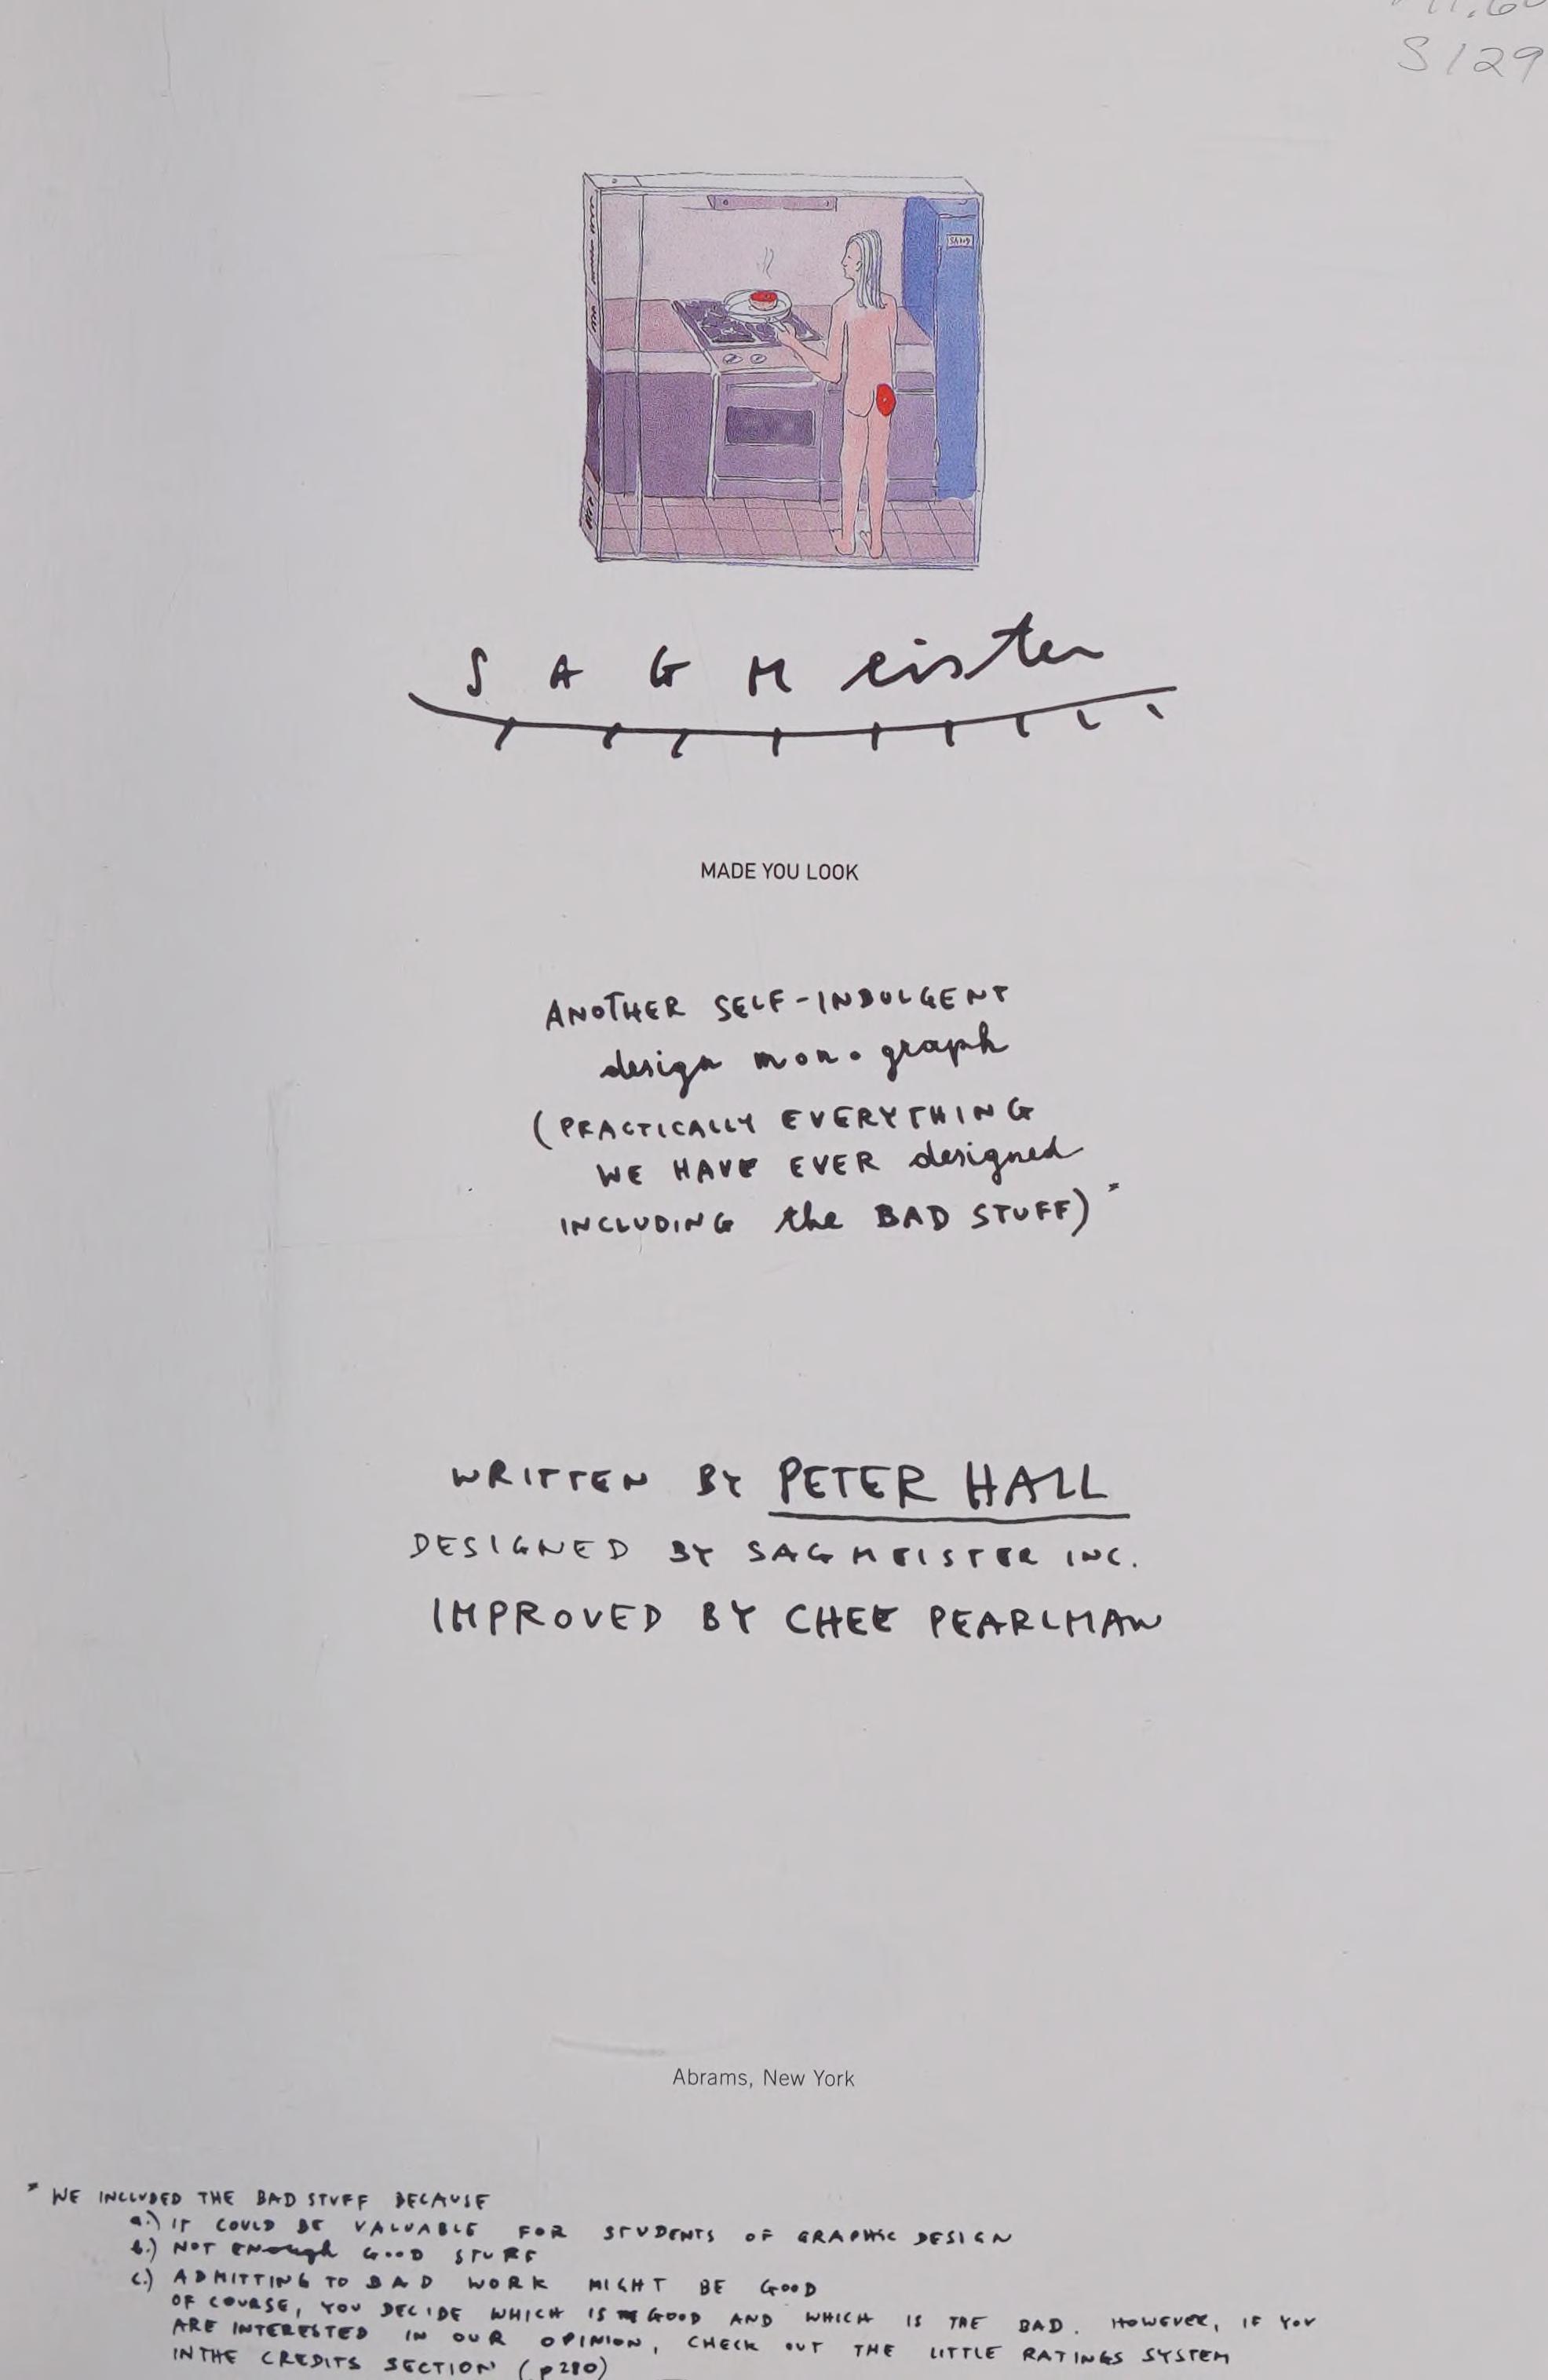 S129
SAGMeister
MADE YOU LOOK
ANOTHER SELF-INDULGENT
design monograph
(PRACTICALLY EVERYTHING
WE HAVE EVER designed
INCLUDING the BAD STUFF)*
WRITTEN BY PETER HALL
DESIGNED BY SAGMEISTER INC.
IMPROVED BY CHEE PEARLMAN
Abrams, New York
* WE INCLUDED THE BAD STUFF BECAUSE
a.) IT COULD BE VALUABLE FOR STUDENTS OF GRAPHIC DESIGN
b.) NOT ENough GOOD STUFF
c.) ADMITTING TO BAD WORK MIGHT BE GOOD
OF COURSE, YOU DECIDE WHICH IS GOOD AND WHICH IS THE BAD. HOWEVER, IF YOU
ARE INTERESTED IN OUR OPINION, CHECK OUT THE LITTLE RATINGS SYSTEM
IN THE CREDITS SECTION (p280)